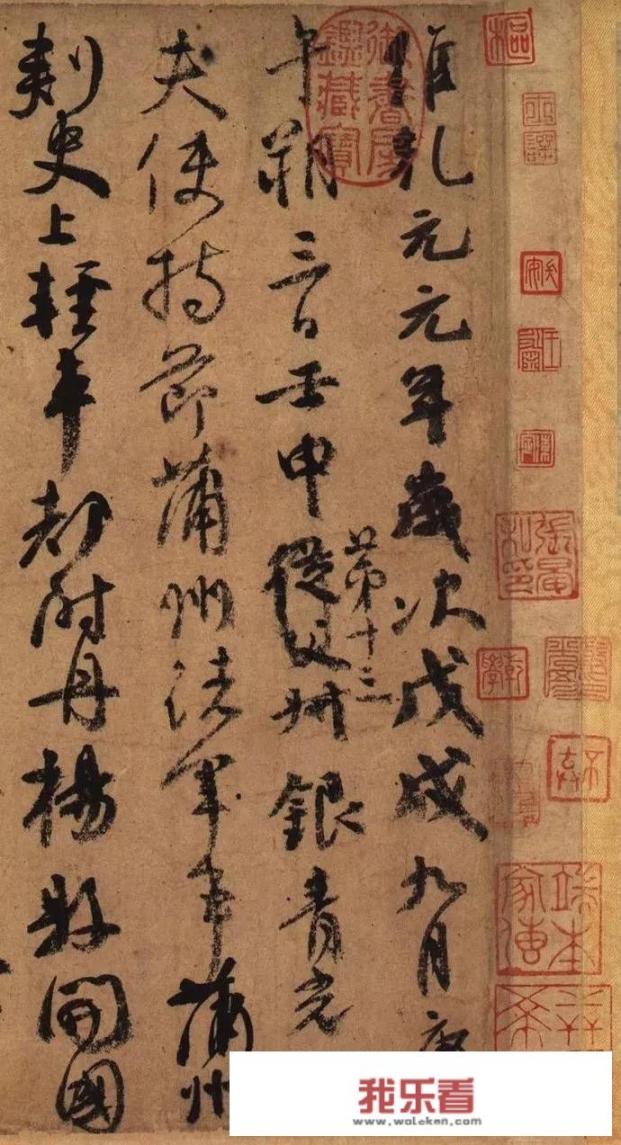 維乾元元年歲次戊戌九月庚
午朔三日壬申從父叔銀青光
第十三
夫使持節蒲州諸軍事蒲州
刺史上輕車都尉丹楊縣開國
御書房鑑藏寶
樞
張晏私印
端本家傳
我乐看
www.woleken.com